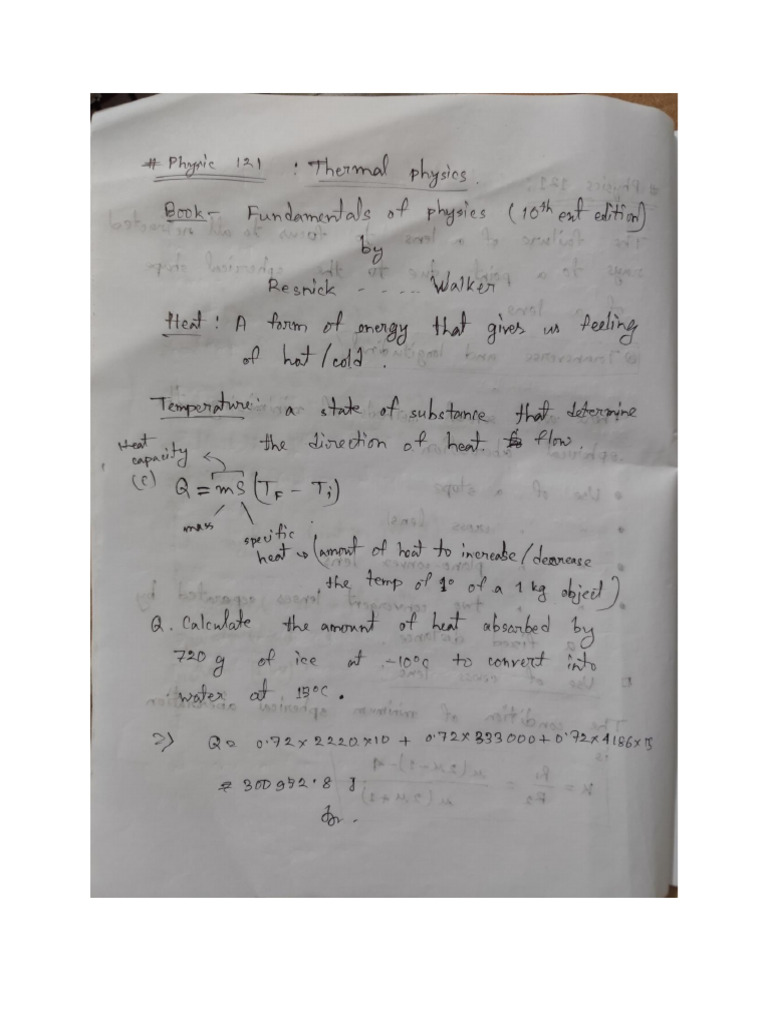 # Physic 121 : Thermal physics.
Book - Fundamentals of physics (10th ext edition)
by
Resnick - - - - . Walker
Heat : A form of energy that gives us feeling
of hot/cold.
Temperature: a state of substance that determine
the direction of heat flow.
Heat
capacity
(c)
Q = mS (TF - Ti)
mass
specific
heat → (amount of heat to increase/decrease
the temp of 1° of a 1 kg object)
Q. Calculate the amount of heat absorbed by
720 g of ice at -10°C to convert into
water at 15°C.
⇒ Q = 0.72 x 2220 x 10 + 0.72 x 333000 + 0.72 x 4186 x 15
= 300952.8 J